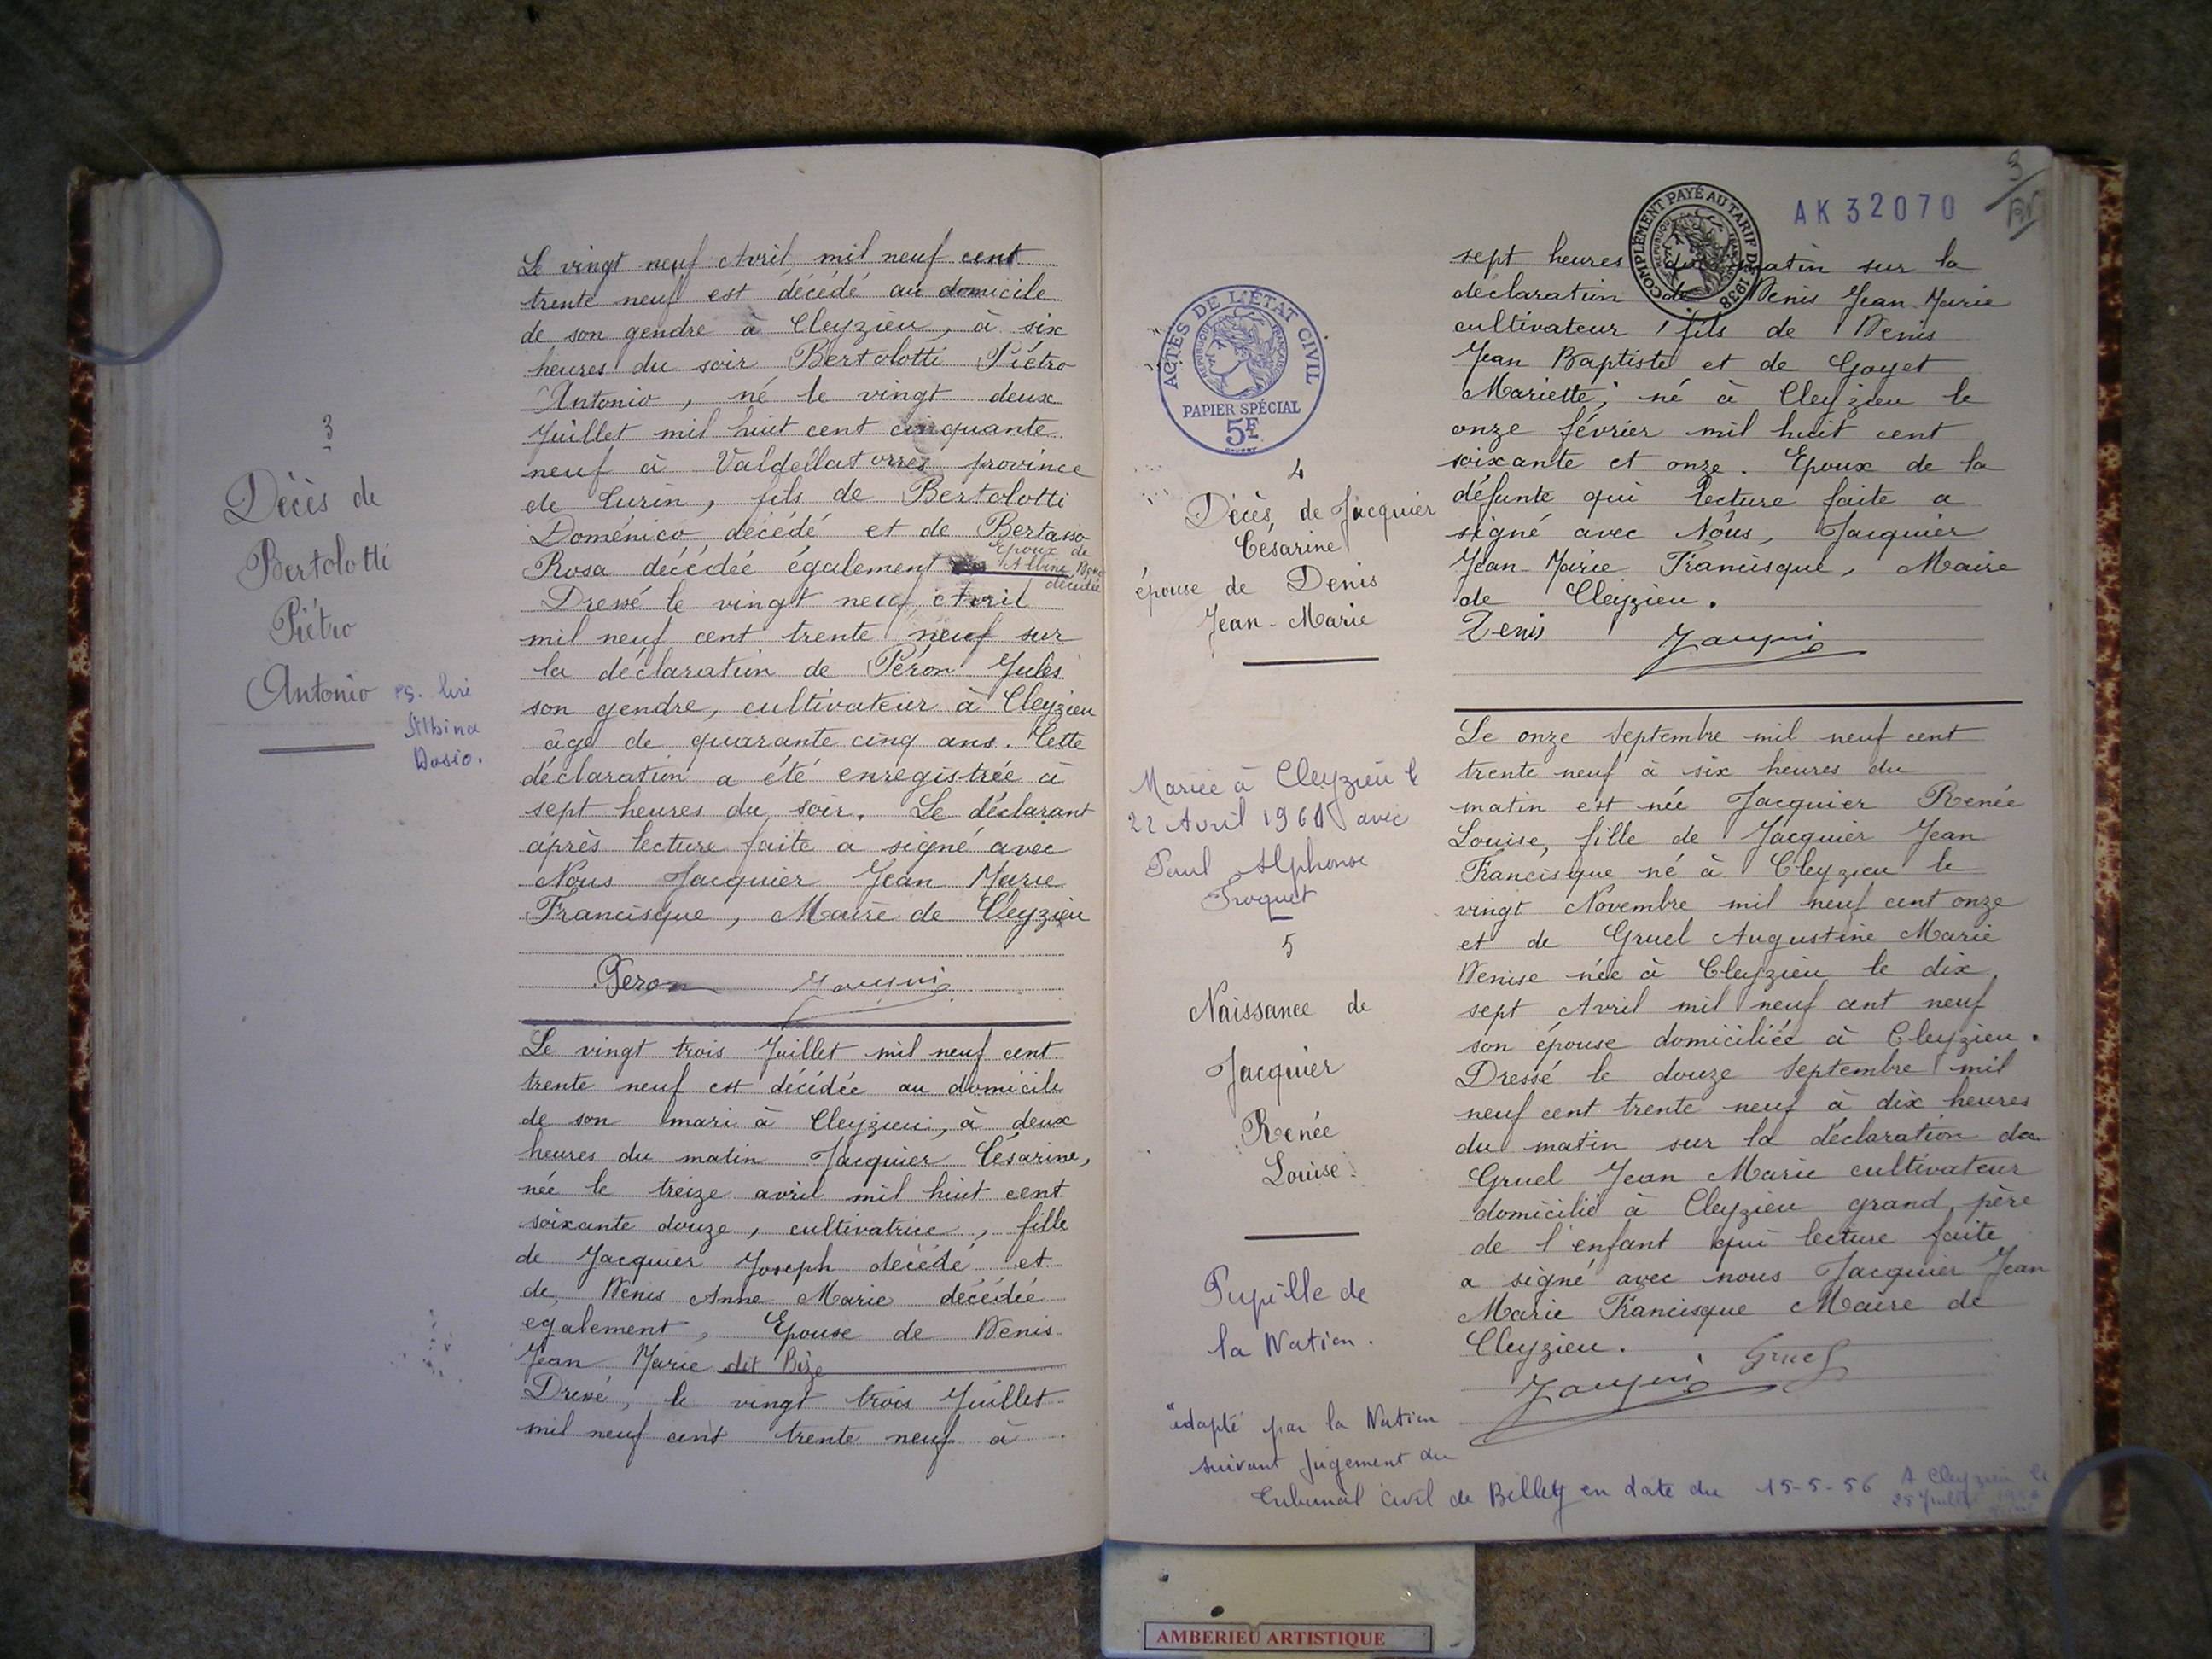 3
Décès de
Bertolotti
Piétro
Antonio
Le vingt neuf Avril mil neuf cent
trente neuf est décédé au domicile
de son gendre à Cleyzieu, à six
heures du soir Bertolotti Piétro
Antonio, né le vingt deux
Juillet mil huit cent cinquante
neuf à Valdellatorrès province
de Turin, fils de Bertolotti
Doménico décédé et de Bertasso
Rosa décédée également Epoux de
Albine
décédée
Dressé le vingt neuf Avril
mil neuf cent trente neuf sur
la déclaration de Péron Jules
son gendre, cultivateur à Cleyzieu
âgé de quarante cinq ans. Cette
déclaration a été enregistrée à
sept heures du soir. Le déclarant
après lecture faite a signé avec
Nous Jacquier Jean Marie
Francisque, Maire de Cleyzieu
Peron
lire
Albina
Le vingt trois Juillet mil neuf cent
trente neuf est décédée au domicile
de son mari à Cleyzieu, à deux
heures du matin Jacquier Césarine,
née le treize avril mil huit cent
soixante douze, cultivatrice, fille
de Jacquier Joseph décédé et
de Denis Anne Marie décédée
egalement, Epouse de Denis
Jean Marie dit Bize
Dressé, le vingt trois Juillet
mil neuf cent trente neuf à
AK32070
3
COMPLÉMENT PAYÉ AU TARIF DE 1938
RÉPUBLIQUE FRANÇAISE
ACTES DE L'ÉTAT CIVIL
RÉPUBLIQUE FRANÇAISE
PAPIER SPÉCIAL
5F
4
Décès de Jacquier
Césarine
épouse de Denis
Jean-Marie
sept heures du matin sur la
déclaration de Denis Jean Marie
cultivateur, fils de Denis
Jean Baptiste et de Goyet
Mariette, né à Cleyzieu le
onze février mil huit cent
soixante et onze. Epoux de la
défunte qui lecture faite a
signé avec Nous, Jacquier
Jean-Marie Francisque, Maire
de Cleyzieu.
Denis
Mariée à Cleyzieu le
22 Avril 1961 avec
Paul Alphonse
Troquet
5
Naissance de
Jacquier
Renée
Louise
Pupille de
la Nation.
Le onze Septembre mil neuf cent
trente neuf à six heures du
matin est née Jacquier Renée
Louise, fille de Jacquier Jean
Francisque né à Cleyzieu le
vingt Novembre mil neuf cent onze
et de Gruel Augustine Marie
Denise née à Cleyzieu le dix
sept Avril mil neuf cent neuf
son épouse domiciliée à Cleyzieu.
Dressé le douze Septembre mil
neuf cent trente neuf à dix heures
du matin sur la déclaration de
Gruel Jean Marie cultivateur
domicilié à Cleyzieu grand père
de l'enfant qui lecture faite
a signé avec nous Jacquier Jean
Marie Francisque Maire de
Cleyzieu.
Gruel
"adopté par la Nation
suivant jugement du
Tribunal Civil de Belley en date du 15-5-56 A Cleyzieu le
25 Juillet
AMBERIEU ARTISTIQUE